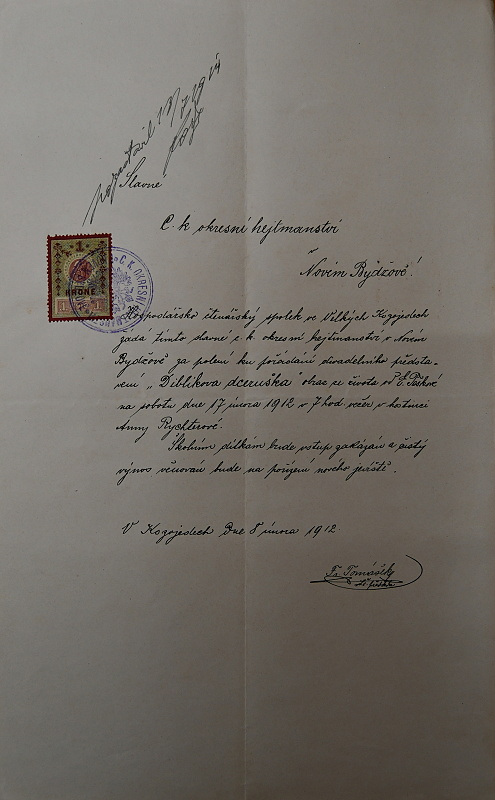 Slavné
C. k okresní hejtmanství
v
Novém Bydžově!
1
KRONE
1 1
C. K. OKRESNÍ
Hospodářsko čtenářský spolek ve Velkých Kozojedech
žádá tímto slavné c. k. okresní hejtmanství v Novém
Bydžově za polení ku pořádání divadelního předsta-
vení „Diblíkova dceruška" obraz ze života od
na sobotu dne 17 února 1912 v 7 hod. večer v hostinci
Anny Rychterové.
Školním dítkám bude vstup zakázán a čistý
výnos věnován bude na pořízení nového jeviště.
V Kozojedech Dne 8 února 1912
Fr. Tomášek